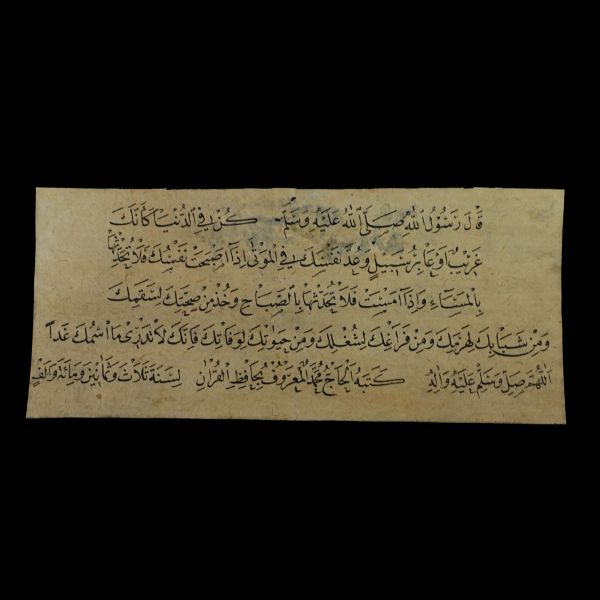 قَالَ رَسُولُ اللهِ صَلَّى اللهُ عَلَيْهِ وَسَلَّمَ كُنْ فِي الدُّنْيَا كَأَنَّكَ
غَرِيبٌ اَوْ عَابِرُ سَبِيلٍ وَعُدَّ نَفْسَكَ فِي الْمَوْتٰى اِذَا اَصْبَحَتْ نَفْسُكَ فَلَا تُحَدِّثْهَا
بِالْمَسَاءِ وَاِذَا اَمْسَيْتَ فَلَا تُحَدِّثْهَا بِالصَّبَاحِ وَخُذْ مِنْ صِحَّتِكَ لِسَقَمِكَ
وَمِنْ شَبَابِكَ لِهَرَمِكَ وَمِنْ فَرَاغِكَ لِشُغْلِكَ وَمِنْ حَيٰوتِكَ لِوَفَاتِكَ فَاِنَّكَ لَا تَدْرِى مَا اسْمُكَ غَداً
اَللّٰهُمَّ صَلِّ وَسَلِّمْ عَلَيْهِ وَاٰلِهِ كَتَبَهُ الْحَاجُّ مُحَمَّدُ الْمَعْرُوفُ بِحَافِظِ الْقُرْاٰنِ لِسَنَةِ ثَلَاثٍ وَثَمَانِينَ وَمِائَةٍ وَاَلْفٍ